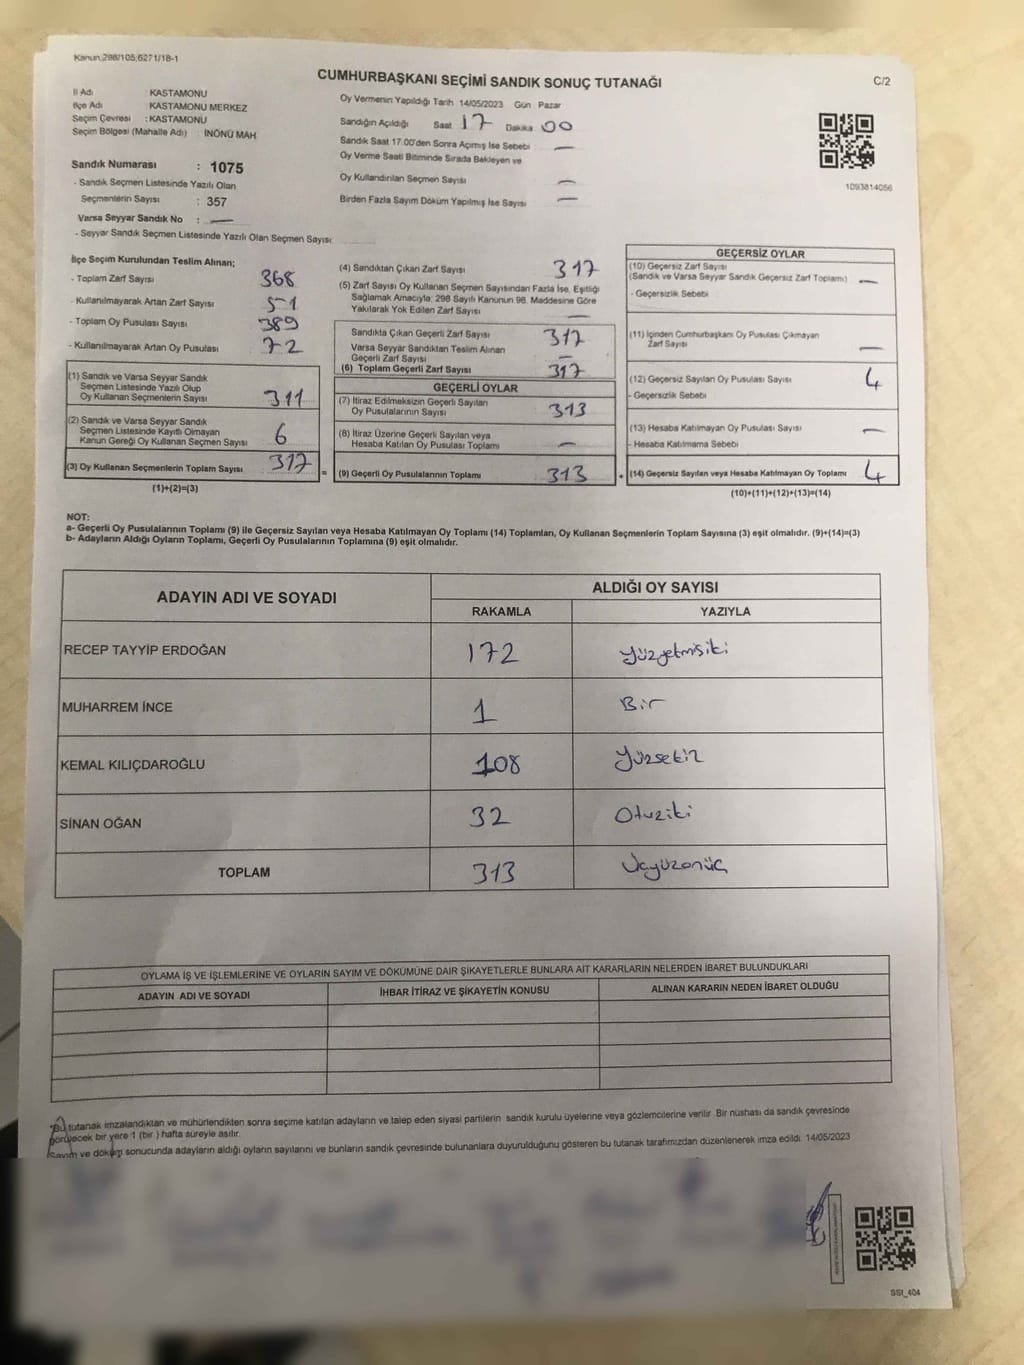 Kanun;298/105;6271/18-1
CUMHURBAŞKANI SEÇİMİ SANDIK SONUÇ TUTANAĞI
C/2
İl Adı : KASTAMONU
İlçe Adı KASTAMONU MERKEZ
Seçim Çevresi : KASTAMONU
Seçim Bölgesi (Mahalle Adı) : İNÖNÜ MAH
Sandık Numarası : 1075
- Sandık Seçmen Listesinde Yazılı Olan
Seçmenlerin Sayısı : 357
Varsa Seyyar Sandık No : —
- Seyyar Sandık Seçmen Listesinde Yazılı Olan Seçmen Sayısı:
Oy Vermenin Yapıldığı Tarih 14/05/2023 Gün Pazar
Sandığın Açıldığı Saat 17 Dakika 00
Sandık Saat 17:00'den Sonra Açılmış İse Sebebi —
Oy Verme Saati Bitiminde Sırada Bekleyen ve
Oy Kullandırılan Seçmen Sayısı —
Birden Fazla Sayım Döküm Yapılmış İse Sayısı —
1093814056
İlçe Seçim Kurulundan Teslim Alınan;
- Toplam Zarf Sayısı 368
- Kullanılmayarak Artan Zarf Sayısı 51
- Toplam Oy Pusulası Sayısı 389
- Kullanılmayarak Artan Oy Pusulası 72
(1) Sandık ve Varsa Seyyar Sandık
Seçmen Listesinde Yazılı Olup
Oy Kullanan Seçmenlerin Sayısı 311
(2) Sandık ve Varsa Seyyar Sandık
Seçmen Listesinde Kayıtlı Olmayan
Kanun Gereği Oy Kullanan Seçmen Sayısı 6
(3) Oy Kullanan Seçmenlerin Toplam Sayısı 317
(1)+(2)=(3)
=
(4) Sandıktan Çıkan Zarf Sayısı 317
(5) Zarf Sayısı Oy Kullanan Seçmen Sayısından Fazla İse, Eşitliği
Sağlamak Amacıyla; 298 Sayılı Kanunun 98. Maddesine Göre
Yakılarak Yok Edilen Zarf Sayısı —
Sandıkta Çıkan Geçerli Zarf Sayısı 317
Varsa Seyyar Sandıktan Teslim Alınan
Geçerli Zarf Sayısı —
(6) Toplam Geçerli Zarf Sayısı 317
GEÇERLİ OYLAR
(7) İtiraz Edilmeksizin Geçerli Sayılan
Oy Pusulalarının Sayısı 313
(8) İtiraz Üzerine Geçerli Sayılan veya
Hesaba Katılan Oy Pusulası Toplamı —
(9) Geçerli Oy Pusulalarının Toplamı 313
+
GEÇERSİZ OYLAR
(10) Geçersiz Zarf Sayısı
(Sandık ve Varsa Seyyar Sandık Geçersiz Zarf Toplamı) —
- Geçersizlik Sebebi
(11) İçinden Cumhurbaşkanı Oy Pusulası Çıkmayan
Zarf Sayısı —
(12) Geçersiz Sayılan Oy Pusulası Sayısı 4
- Geçersizlik Sebebi
(13) Hesaba Katılmayan Oy Pusulası Sayısı —
- Hesaba Katılmama Sebebi
(14) Geçersiz Sayılan veya Hesaba Katılmayan Oy Toplamı 4
(10)+(11)+(12)+(13)=(14)
NOT:
a- Geçerli Oy Pusulalarının Toplamı (9) ile Geçersiz Sayılan veya Hesaba Katılmayan Oy Toplamı (14) Toplamları, Oy Kullanan Seçmenlerin Toplam Sayısına (3) eşit olmalıdır. (9)+(14)=(3)
b- Adayların Aldığı Oyların Toplamı, Geçerli Oy Pusulalarının Toplamına (9) eşit olmalıdır.
ADAYIN ADI VE SOYADI
ALDIĞI OY SAYISI
RAKAMLA YAZIYLA
RECEP TAYYİP ERDOĞAN 172 Yüzyetmişiki
MUHARREM İNCE 1 Bir
KEMAL KILIÇDAROĞLU 108 Yüzsekiz
SİNAN OĞAN 32 Otuziki
TOPLAM 313 Üçyüzonüç
OYLAMA İŞ VE İŞLEMLERİNE VE OYLARIN SAYIM VE DÖKÜMÜNE DAİR ŞİKAYETLERLE BUNLARA AİT KARARLARIN NELERDEN İBARET BULUNDUKLARI
ADAYIN ADI VE SOYADI İHBAR İTİRAZ VE ŞİKAYETİN KONUSU ALINAN KARARIN NEDEN İBARET OLDUĞU
*Bu tutanak imzalandıktan ve mühürlendikten sonra seçime katılan adayların ve talep eden siyasi partilerin sandık kurulu üyelerine veya gözlemcilerine verilir. Bir nüshası da sandık çevresinde
görülecek bir yere 1 (bir) hafta süreyle asılır.
Sayım ve döküm sonucunda adayların aldığı oyların sayılarını ve bunların sandık çevresinde bulunanlara duyurulduğunu gösteren bu tutanak tarafımızdan düzenlenerek imza edildi. 14/05/2023
SSI_404